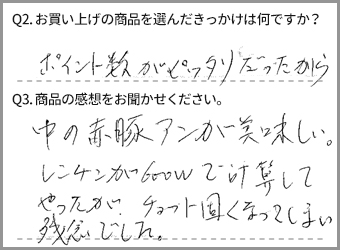 Q2. お買い上げの商品を選んだきっかけは何ですか？
ポイント数がピッタリだったから
Q3. 商品の感想をお聞かせください。
中の赤豚アンが美味しい。
レンチンが600Wで計算して
やったが、チョット固くなってしまい
残念でした。